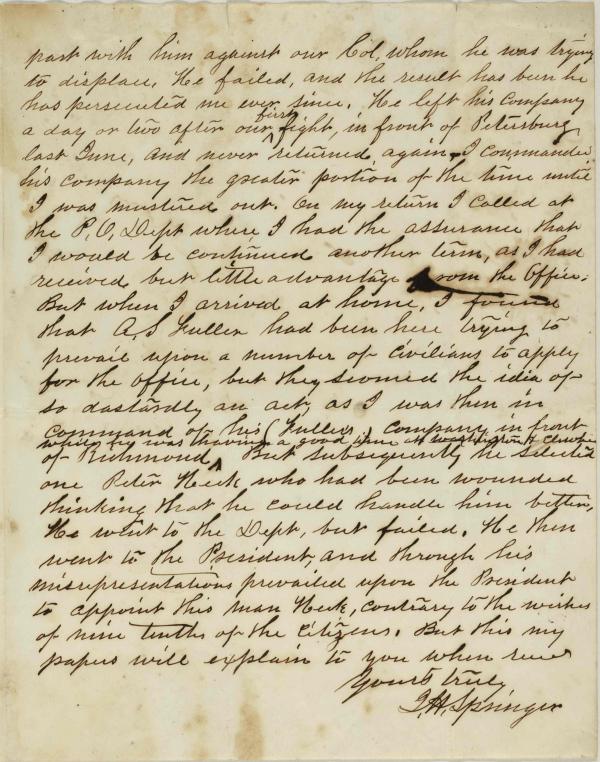 part with him against our Col, whom he was trying
to displace. He failed, and the result has been he
has persecuted me ever since. He left his Company
a day or two after our first fight, in front of Petersburg
last June, and never returned again. I commanded
his company the greater portion of the time until
I was mustered out. On my return I called at
the P.O. Dept where I had the assurance that
I would be continued another term, as I had
received but little advantage from the Office.
But when I arrived at home, I found
that A.S Fuller had been here trying to
prevail upon a number of civilians to apply
for the office, but they scorned the idia of
so dastardly an act, as I was then in
command of his (Fullers) company in front
while he was having a good time at Washington & elsewhere
of Richmond. But subsequently he selected
one Peter Heck who had been wounded
thinking that he could handle him better,
He went to the Dept, but failed. He then
went to the President, and through his
misrepresentations prevailed upon the President
to appoint this man Heck, contrary to the wishes
of nine tenths of the Citizens. But this my
papers will explain to you when recd
Yours truly
Springer